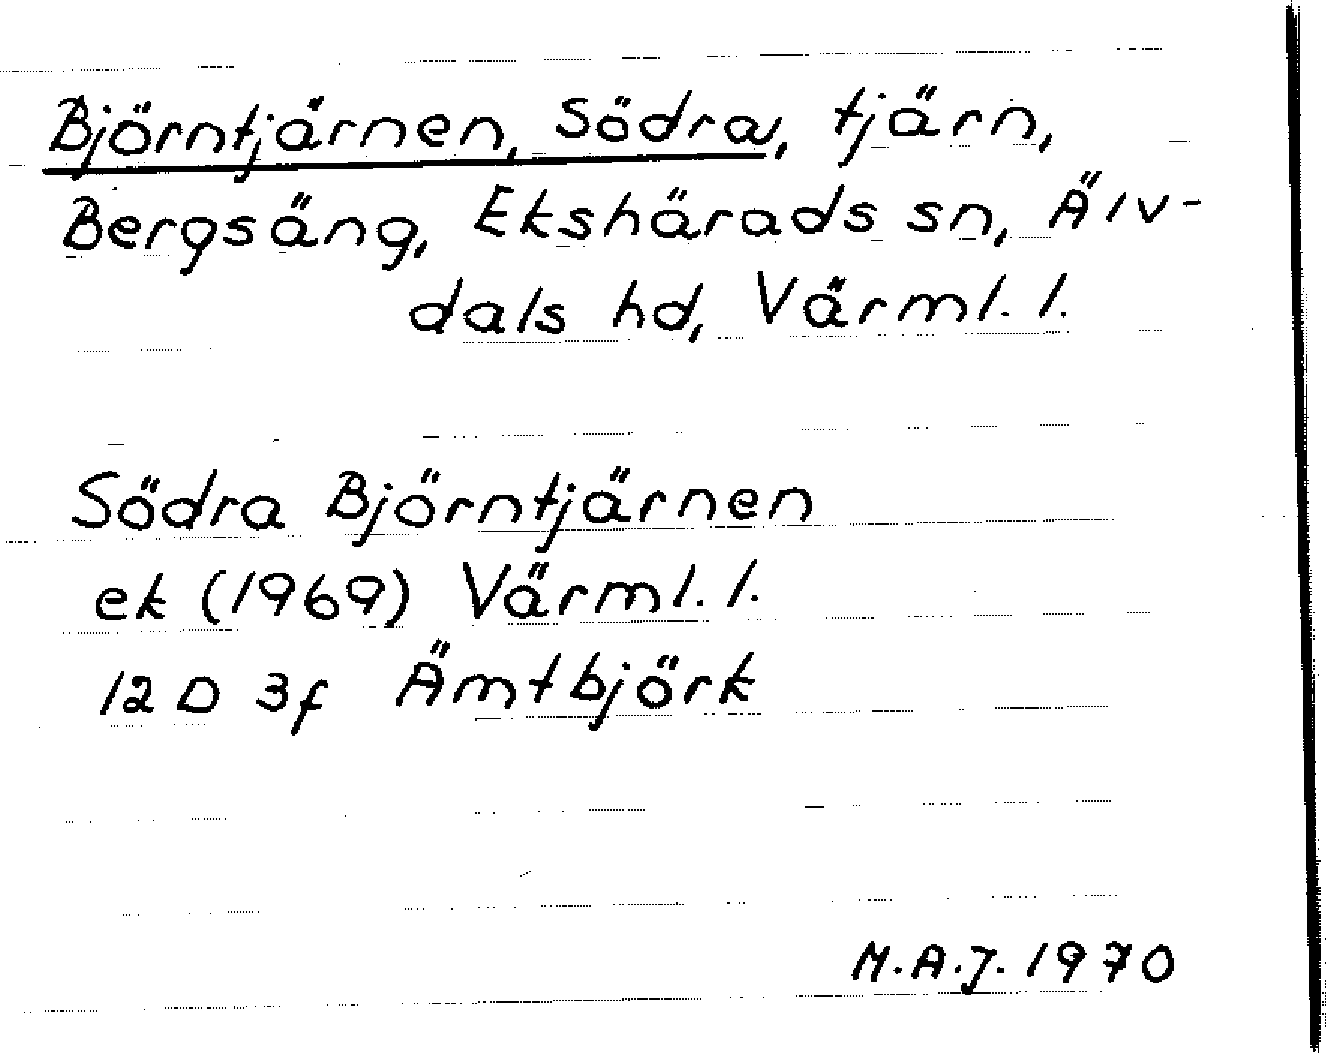 Björntjärnen, Södra, tjärn,
Bergsäng, Ekshärads sn, Älv-
dals hd, Värml. l.
Södra Björntjärnen
ek (1969) Värml. l.
12 D 3f Ämtbjörk
M.A.J. 1970